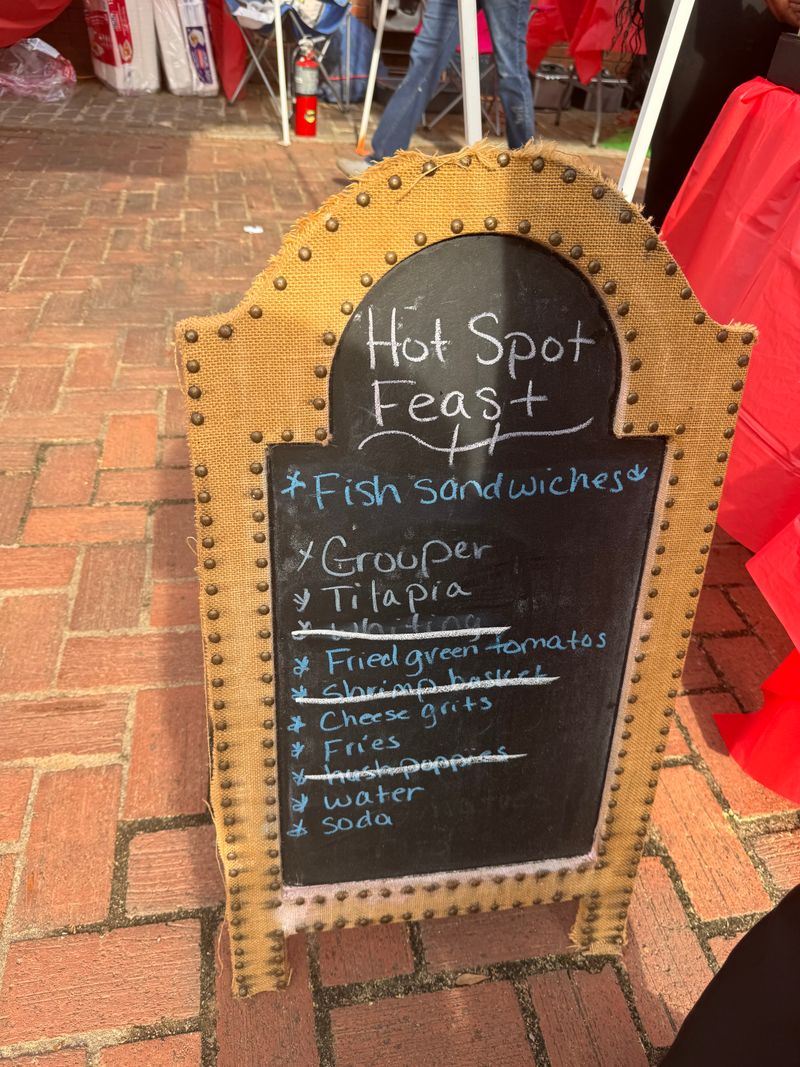 Hot Spot
Feast
Fish sandwiches
Grouper
Tilapia
Whiting
Fried green tomatos
Shrimp basket
Cheese grits
Fries
hushpoppies
water
soda